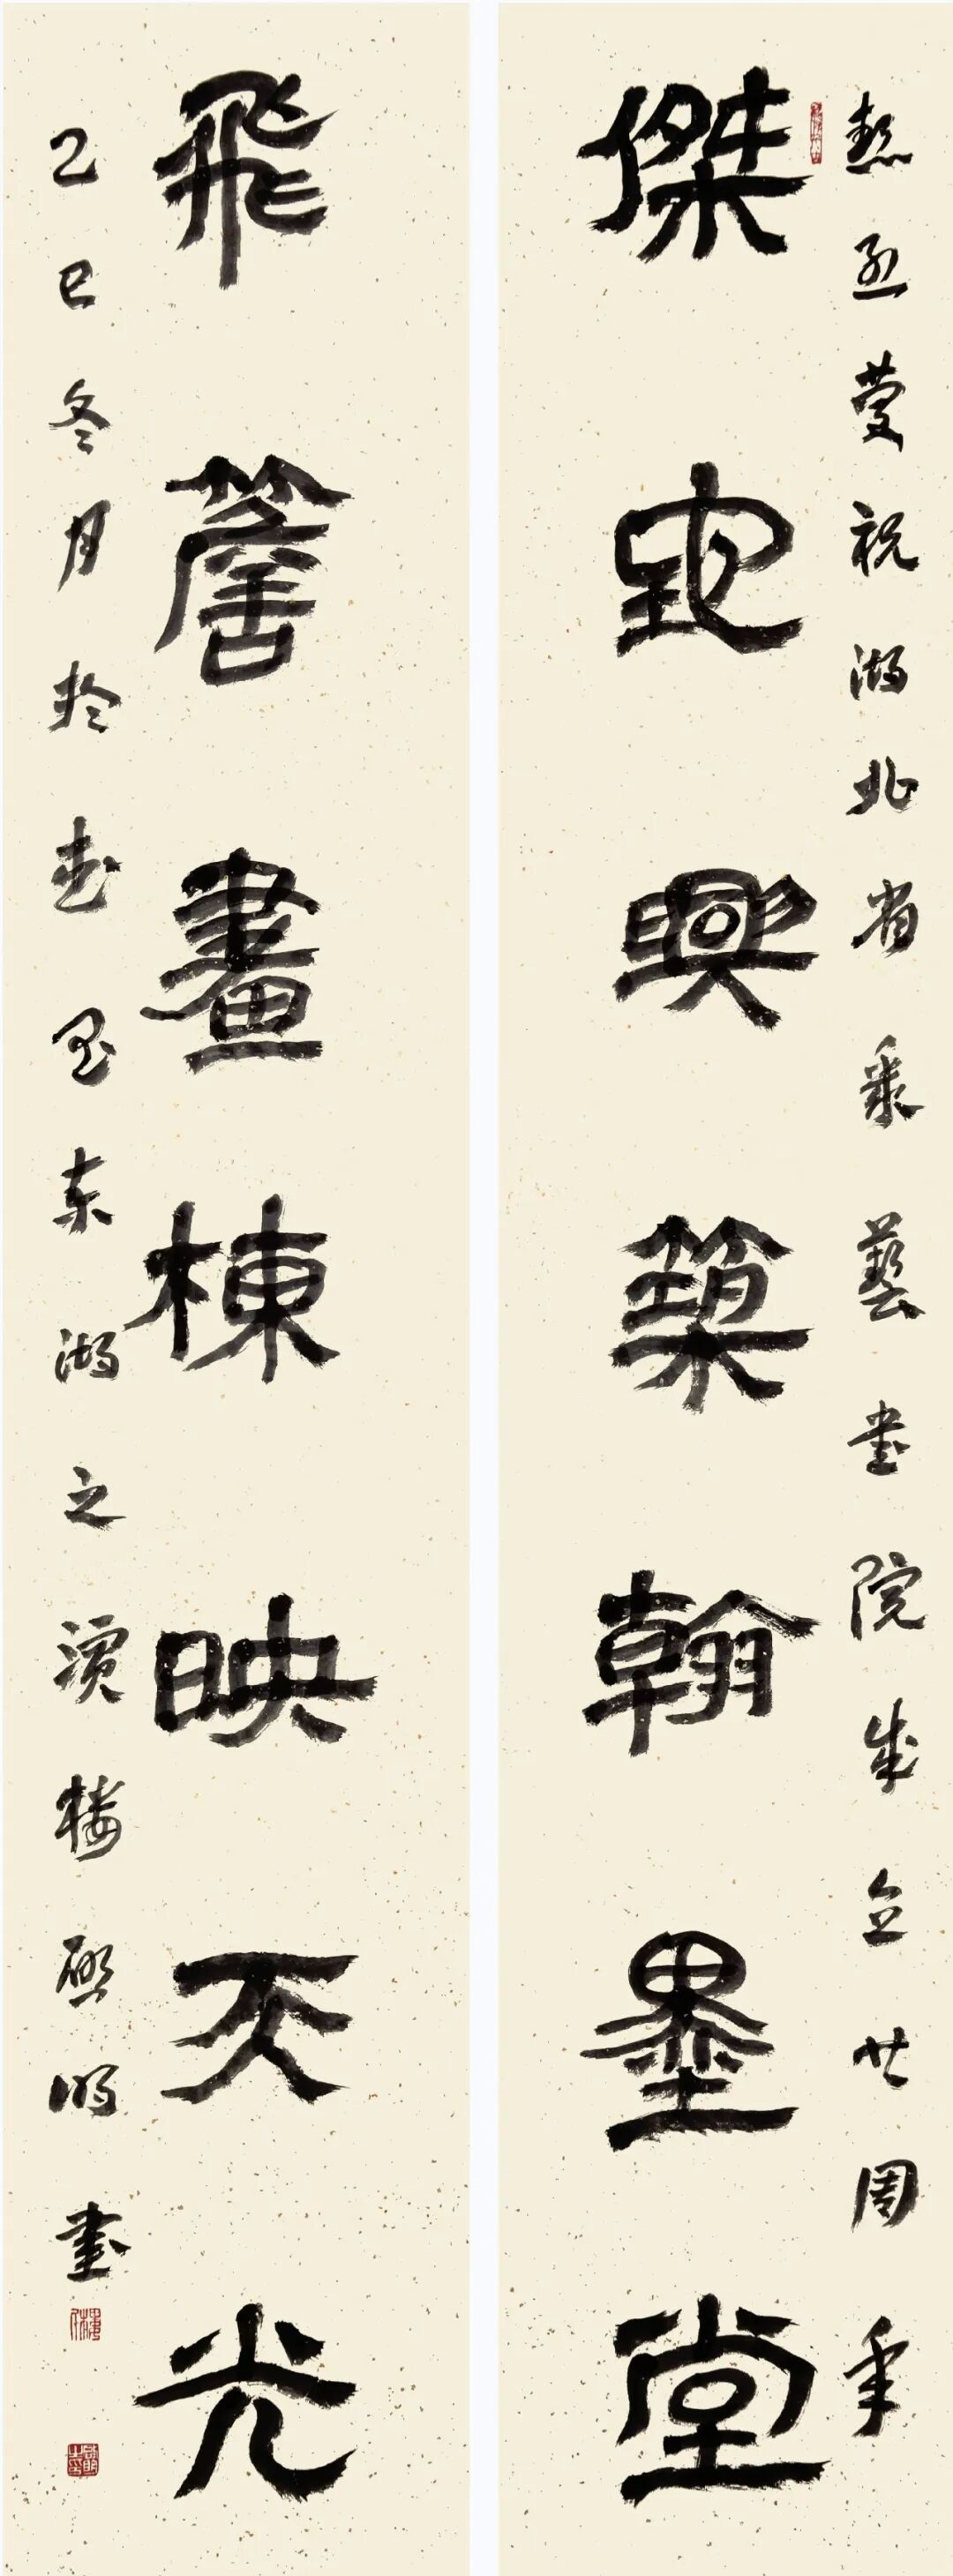 熱烈慶祝湖北省聚藝書院成立廿周年
傑地興築翰墨堂
飛簷畫棟映天光
乙巳冬月於武昌東湖之濱樓啟明書